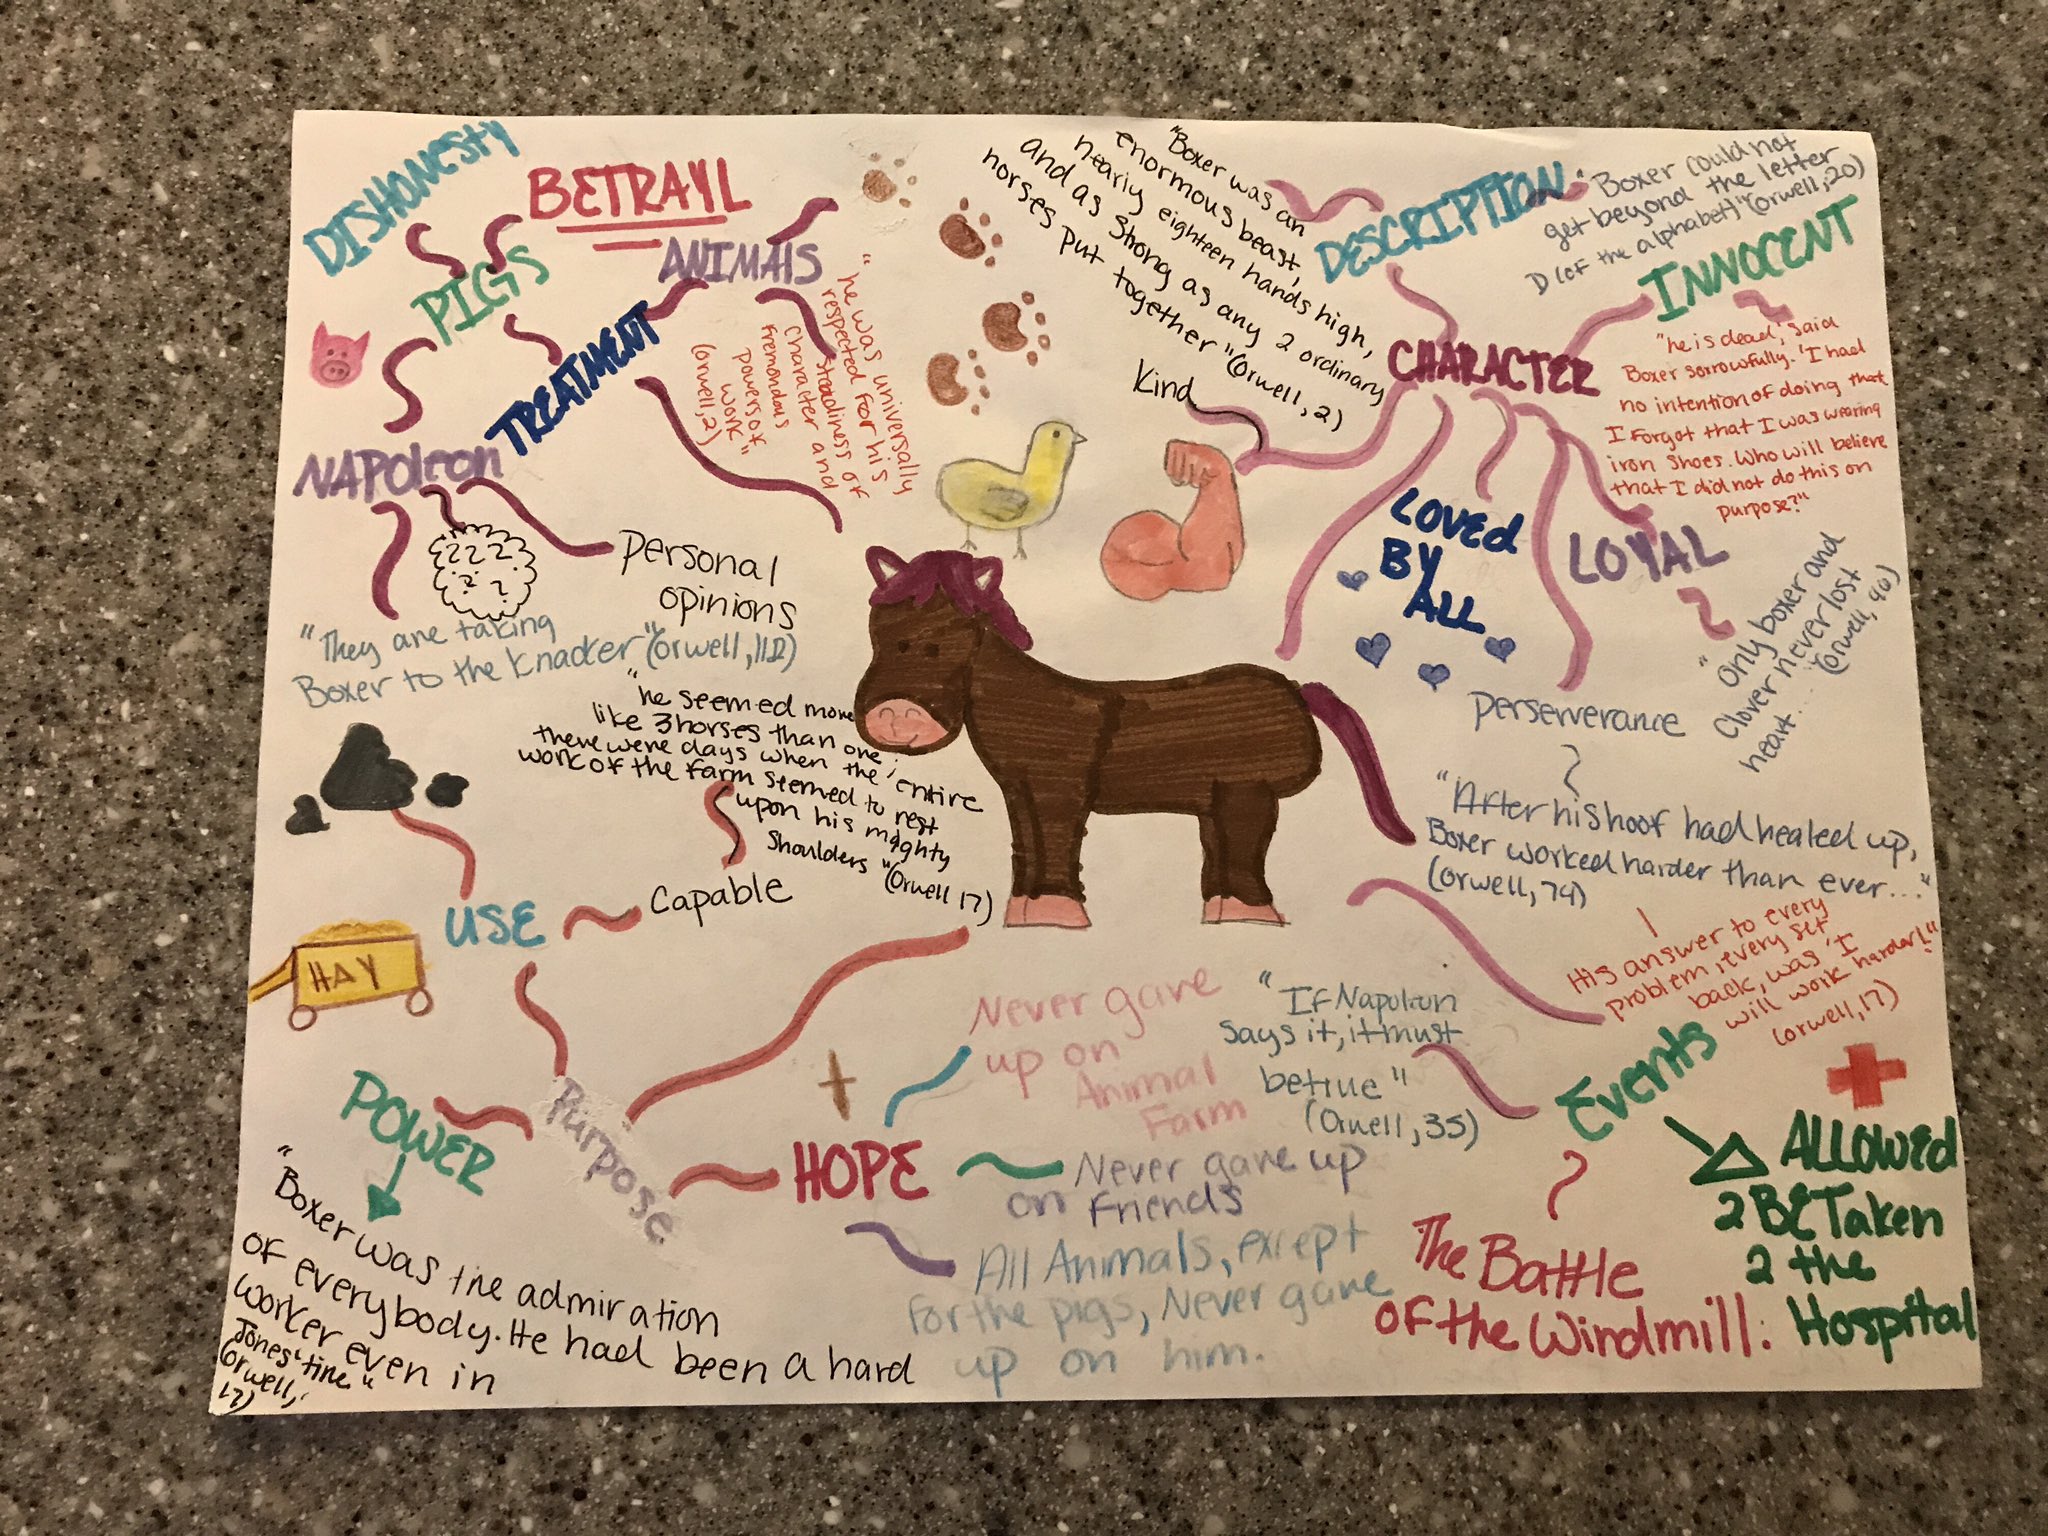 DISHONESTY
BETRAYL
PIGS
ANIMALS
TREATMENT
"he was universally
respected for his
steadiness of
character and
tremondous
powers of
work"
(orwell, 2)
NAPOLEON
Personal
opinions
"They are taking
Boxer to the knacker"(orwell, 112)
"he seemed more
like 3 horses than one;
there were days when the entire
work of the farm seemed to rest
upon his mighty
shoulders"(Orwell 17)
Capable
USE
HAY
Purpose
POWER
"Boxer was the admiration
of everybody. He had been a hard
worker even in
Jones' time"
(orwell,
17)
HOPE
Never gave
up on
Animal
Farm
Never gave up
on Friends
All Animals, except
for the pigs, Never gave
up on him.
"Boxer was an
enormous beast,
nearly eighteen hands high,
and as strong as any 2 ordinary
horses put together"(orwell, 2)
DESCRIPTION
"Boxer could not
get beyond the letter
D (of the alphabet)"(orwell, 20)
INNOCENT
"he is dead,' said
Boxer sorrowfully. 'I had
no intention of doing that
I forgot that I was wearing
iron shoes. Who will believe
that I did not do this on
purpose?"
CHARACTER
Kind
LOVED
BY
ALL
LOYAL
"Only boxer and
Clover never lost
heart..." (orwell, 46)
perserverance
"After his hoof had healed up,
Boxer worked harder than ever..."
(orwell, 74)
His answer to every
problem, every set
back, was 'I
will work harder!"
(orwell, 17)
"If Napoleon
says it, it must
be true"
(Orwell, 35)
Events
The Battle
of the Windmill.
ALLOWED
2 BE Taken
2 the
Hospital